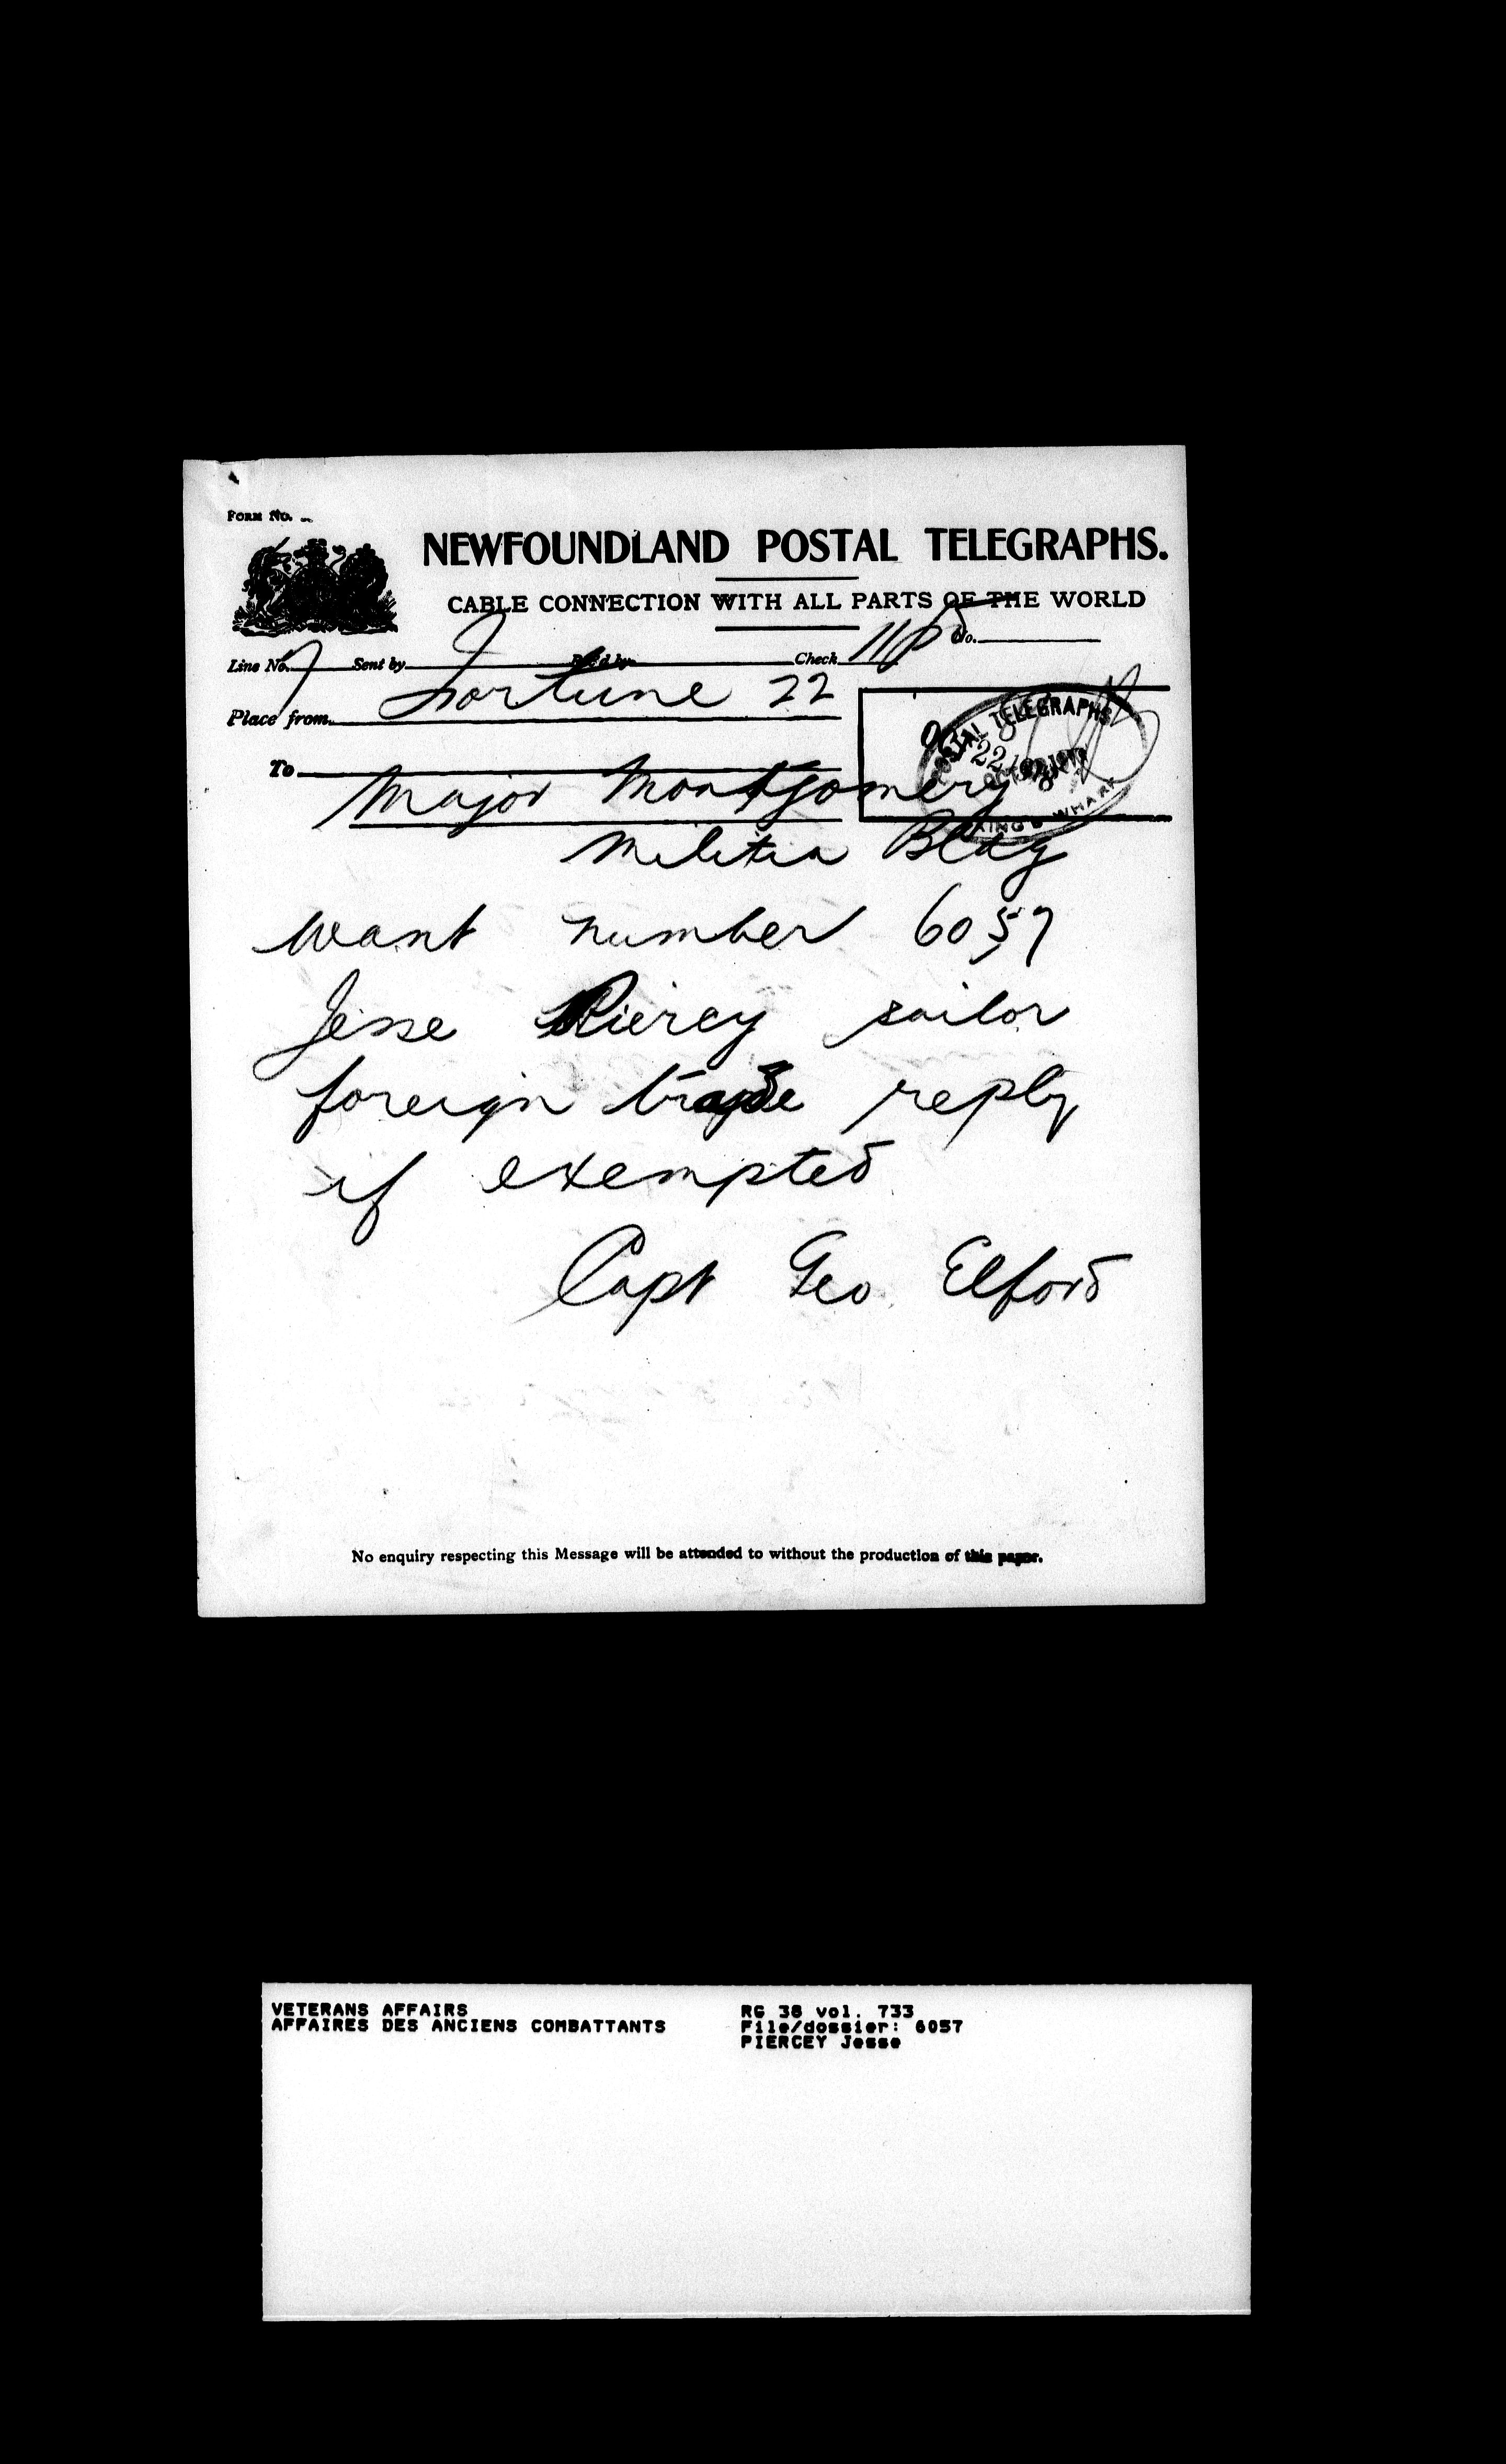 FORM No.
NEWFOUNDLAND POSTAL TELEGRAPHS.
CABLE CONNECTION WITH ALL PARTS OF THE WORLD
No.
Line No. 7 Sent by Rec'd by Check
Place from Fortune 22
POSTAL TELEGRAPHS
KING'S WHARF
To Major Montgomery
Militia Bldg
Want number 6057
Jesse Piercy sailor
foreign trade reply
if exempted
Capt Geo Elford
No enquiry respecting this Message will be attended to without the production of this paper.
VETERANS AFFAIRS RG 38 vol. 733
AFFAIRES DES ANCIENS COMBATTANTS File/dossier: 6057
PIERCEY Jesse